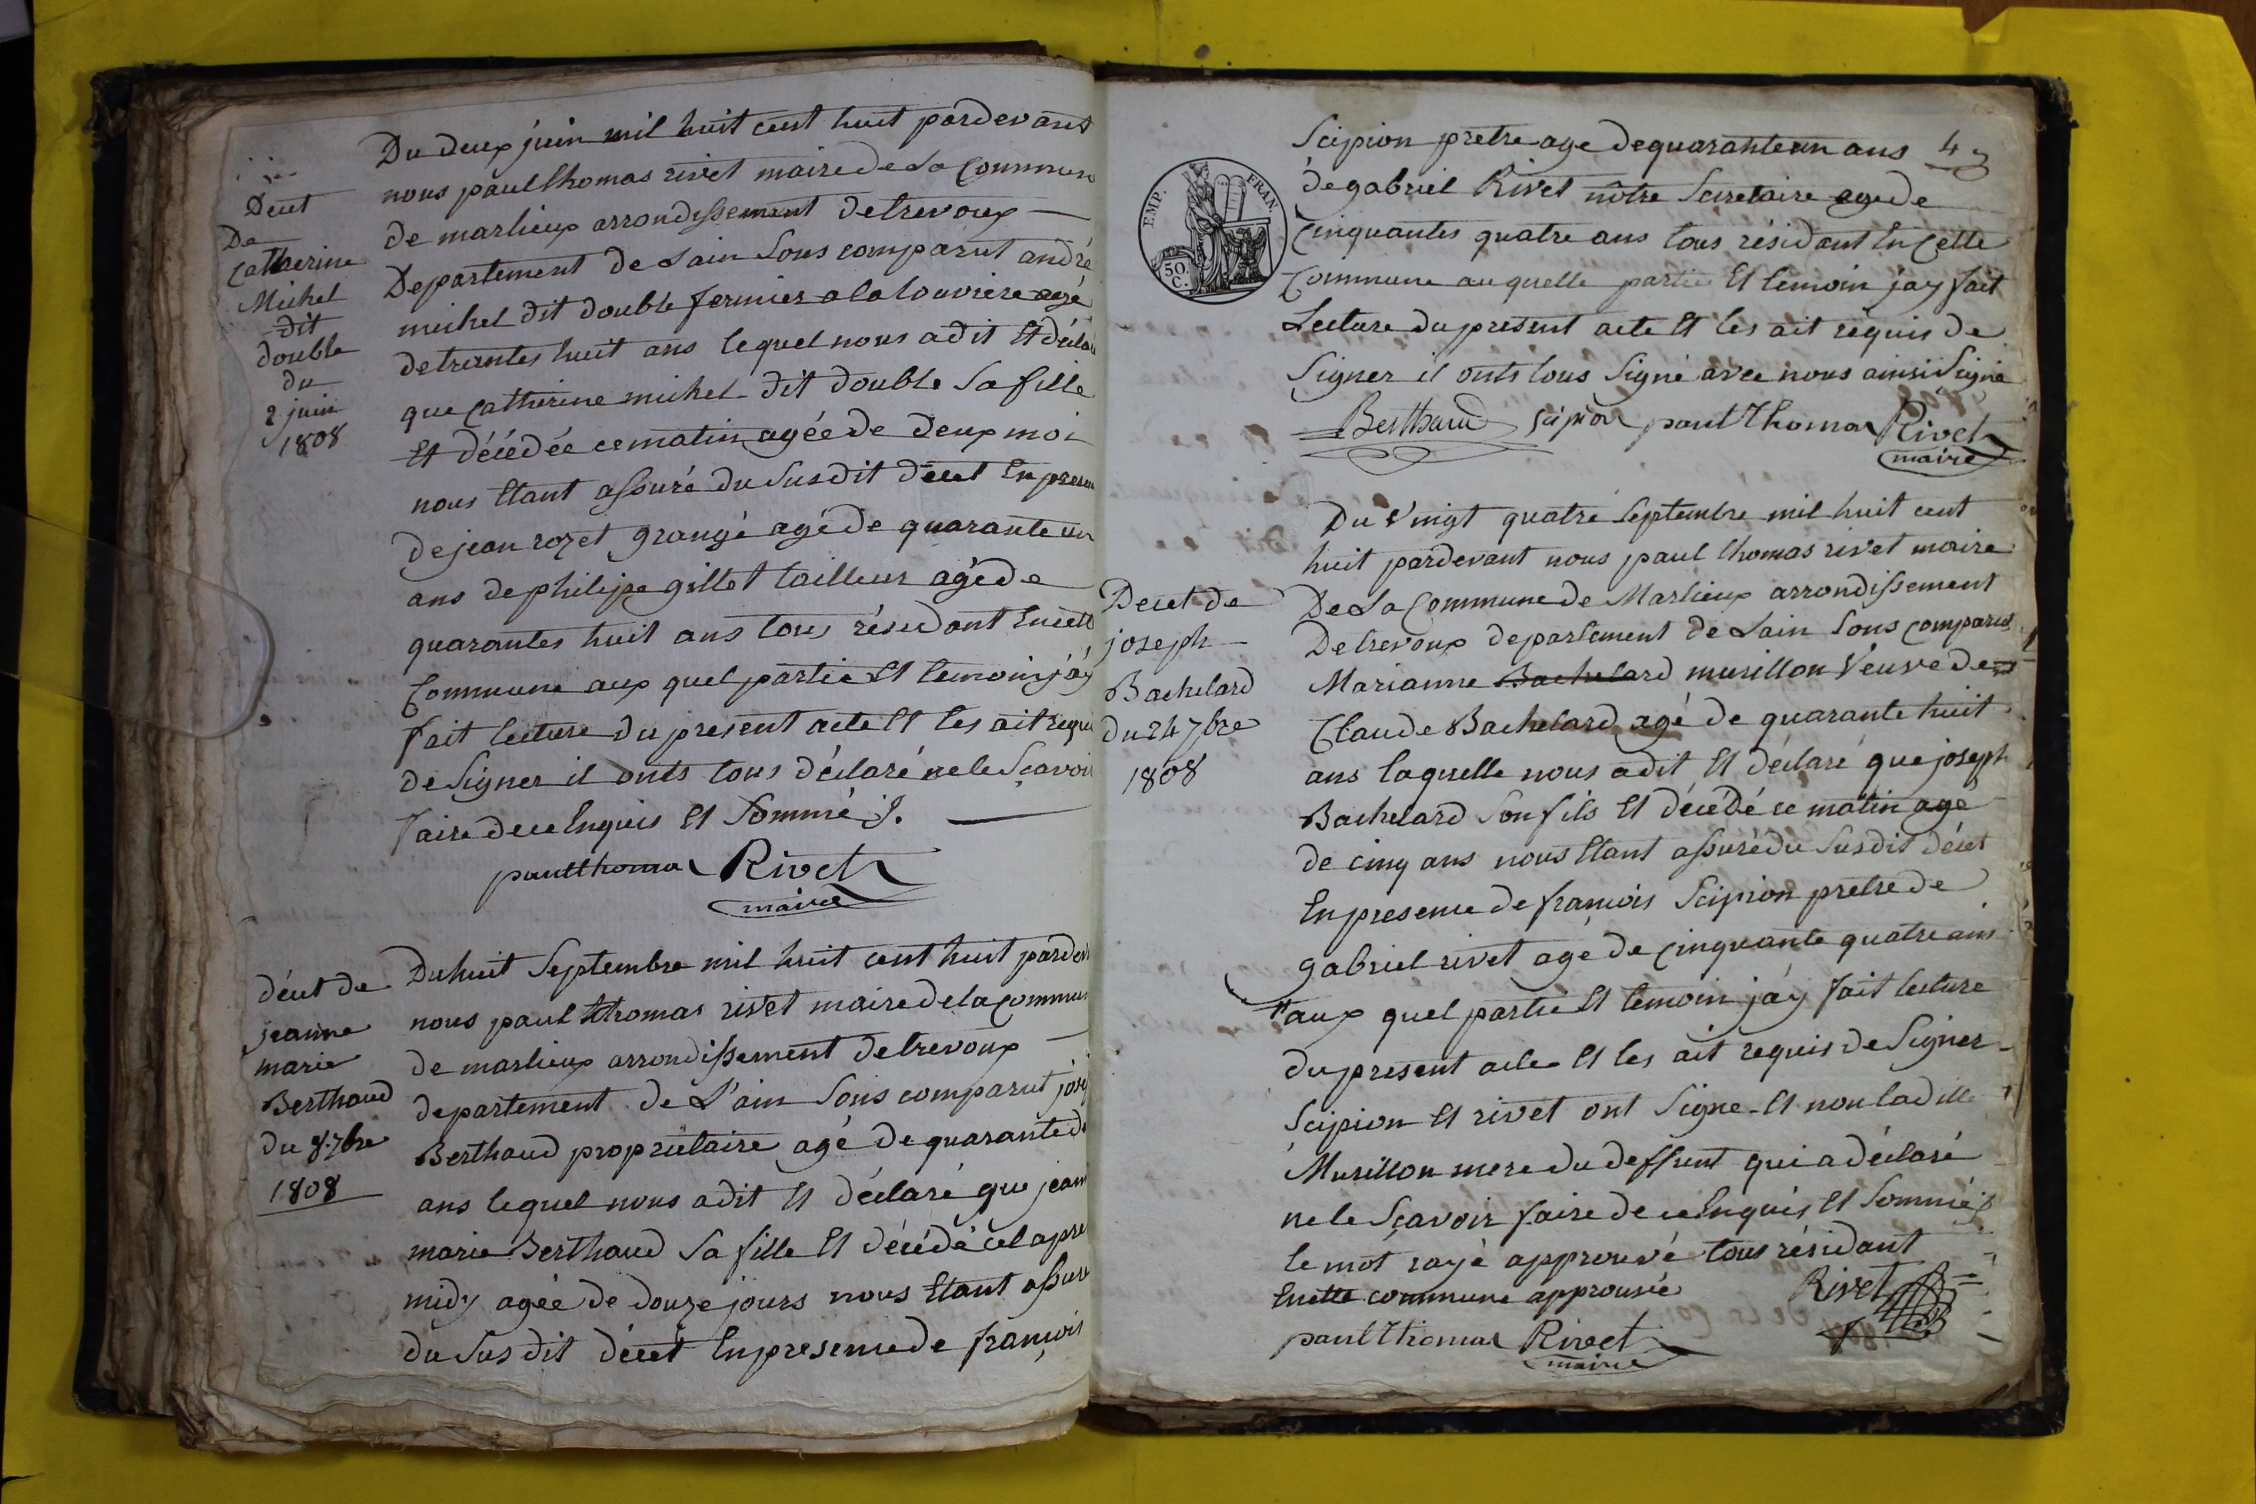 Decet
De
Catherine
Michel
dit
double
du
2 juin
1808
Du deux juin mil huit cent huit pardevant
nous paul thomas rivet maire de La Commune
de marlieux arrondissement de trevoux
Departement de Lain Sous comparut andré
michel dit double fermier a la louvriere agé
de trantes huit ans lequel nous a dit Et décla
que Catherine michel dit double Sa fille
Et décédée ce matin agée de deux moi
nous Etant assuré du Susdit decet En presen
de jean rozet grangé agé de quarante un
ans de philipe gillet tailleur agé de
quarantes huit ans tous résidant En cett
Commune aux quel partie Et temoin j'ay
fait lecture du present acte Et les ait requi
de Signer il onts tous déclaré ne le Sçavoir
faire de ce Enquis Et Sommé J.
paul thomas Rivet
maire
décet de
jeanne
marie
Berthaud
du 8 7bre
1808
Du huit Septembre mil huit cent huit pardev
nous paul thomas rivet maire de la Commun
de marlieux arrondissement de trevoux
departement de L'ain Sous comparut jose
Berthaud propriétaire agé de quarante d
ans lequel nous a dit Et déclaré que jeann
marie Berthaud Sa fille Et décédé cet apre
midy agée de douze jours nous Etant assuré
du Sus dit décet En presence de françois
EMP. FRAN.
50.
C.
4
Scipion pretre age de quarante un ans
de gabriel Rivet nôtre Secretaire age de
Cinquantes quatre ans tous résidant En Cette
Commune auquelle partie Et temoin j'ay fait
Lecture du present acte Et les ait requis de
Signer il onts tous Signé avec nous ainsi Signé
Berthaud Scipion paul Thomas Rivet
maire
Decet de
joseph
Bachelard
du 24 7bre
1808
Du Vingt quatre Septembre mil huit cent
huit pardevant nous paul thomas rivet maire
De La Commune de Marlieux arrondissement
De trevoux departement de Lain Sous comparut
Marianne Bachelard murillon Veuve de
Claude Bachelard agé de quarante huit
ans laquelle nous a dit Et déclaré que joseph
Bachelard Son fils Et décédé ce matin agé
de cinq ans nous Etant assuré du Susdit décet
En presence de françois Scipion pretre de
gabriel rivet agé de Cinquante quatre ans
aux quel partie Et temoin j'ay fait lecture
du present acte Et les ait requis de Signer
Scipion Et rivet ont Signe Et non la ditte
Murillon mere du deffunt qui a déclaré
ne le Sçavoir faire de ce Enquis Et Sommé J.
le mot rayé approuvé tous résidant
En cette commune approuvée Rivet
paul Thomas Rivet
maire